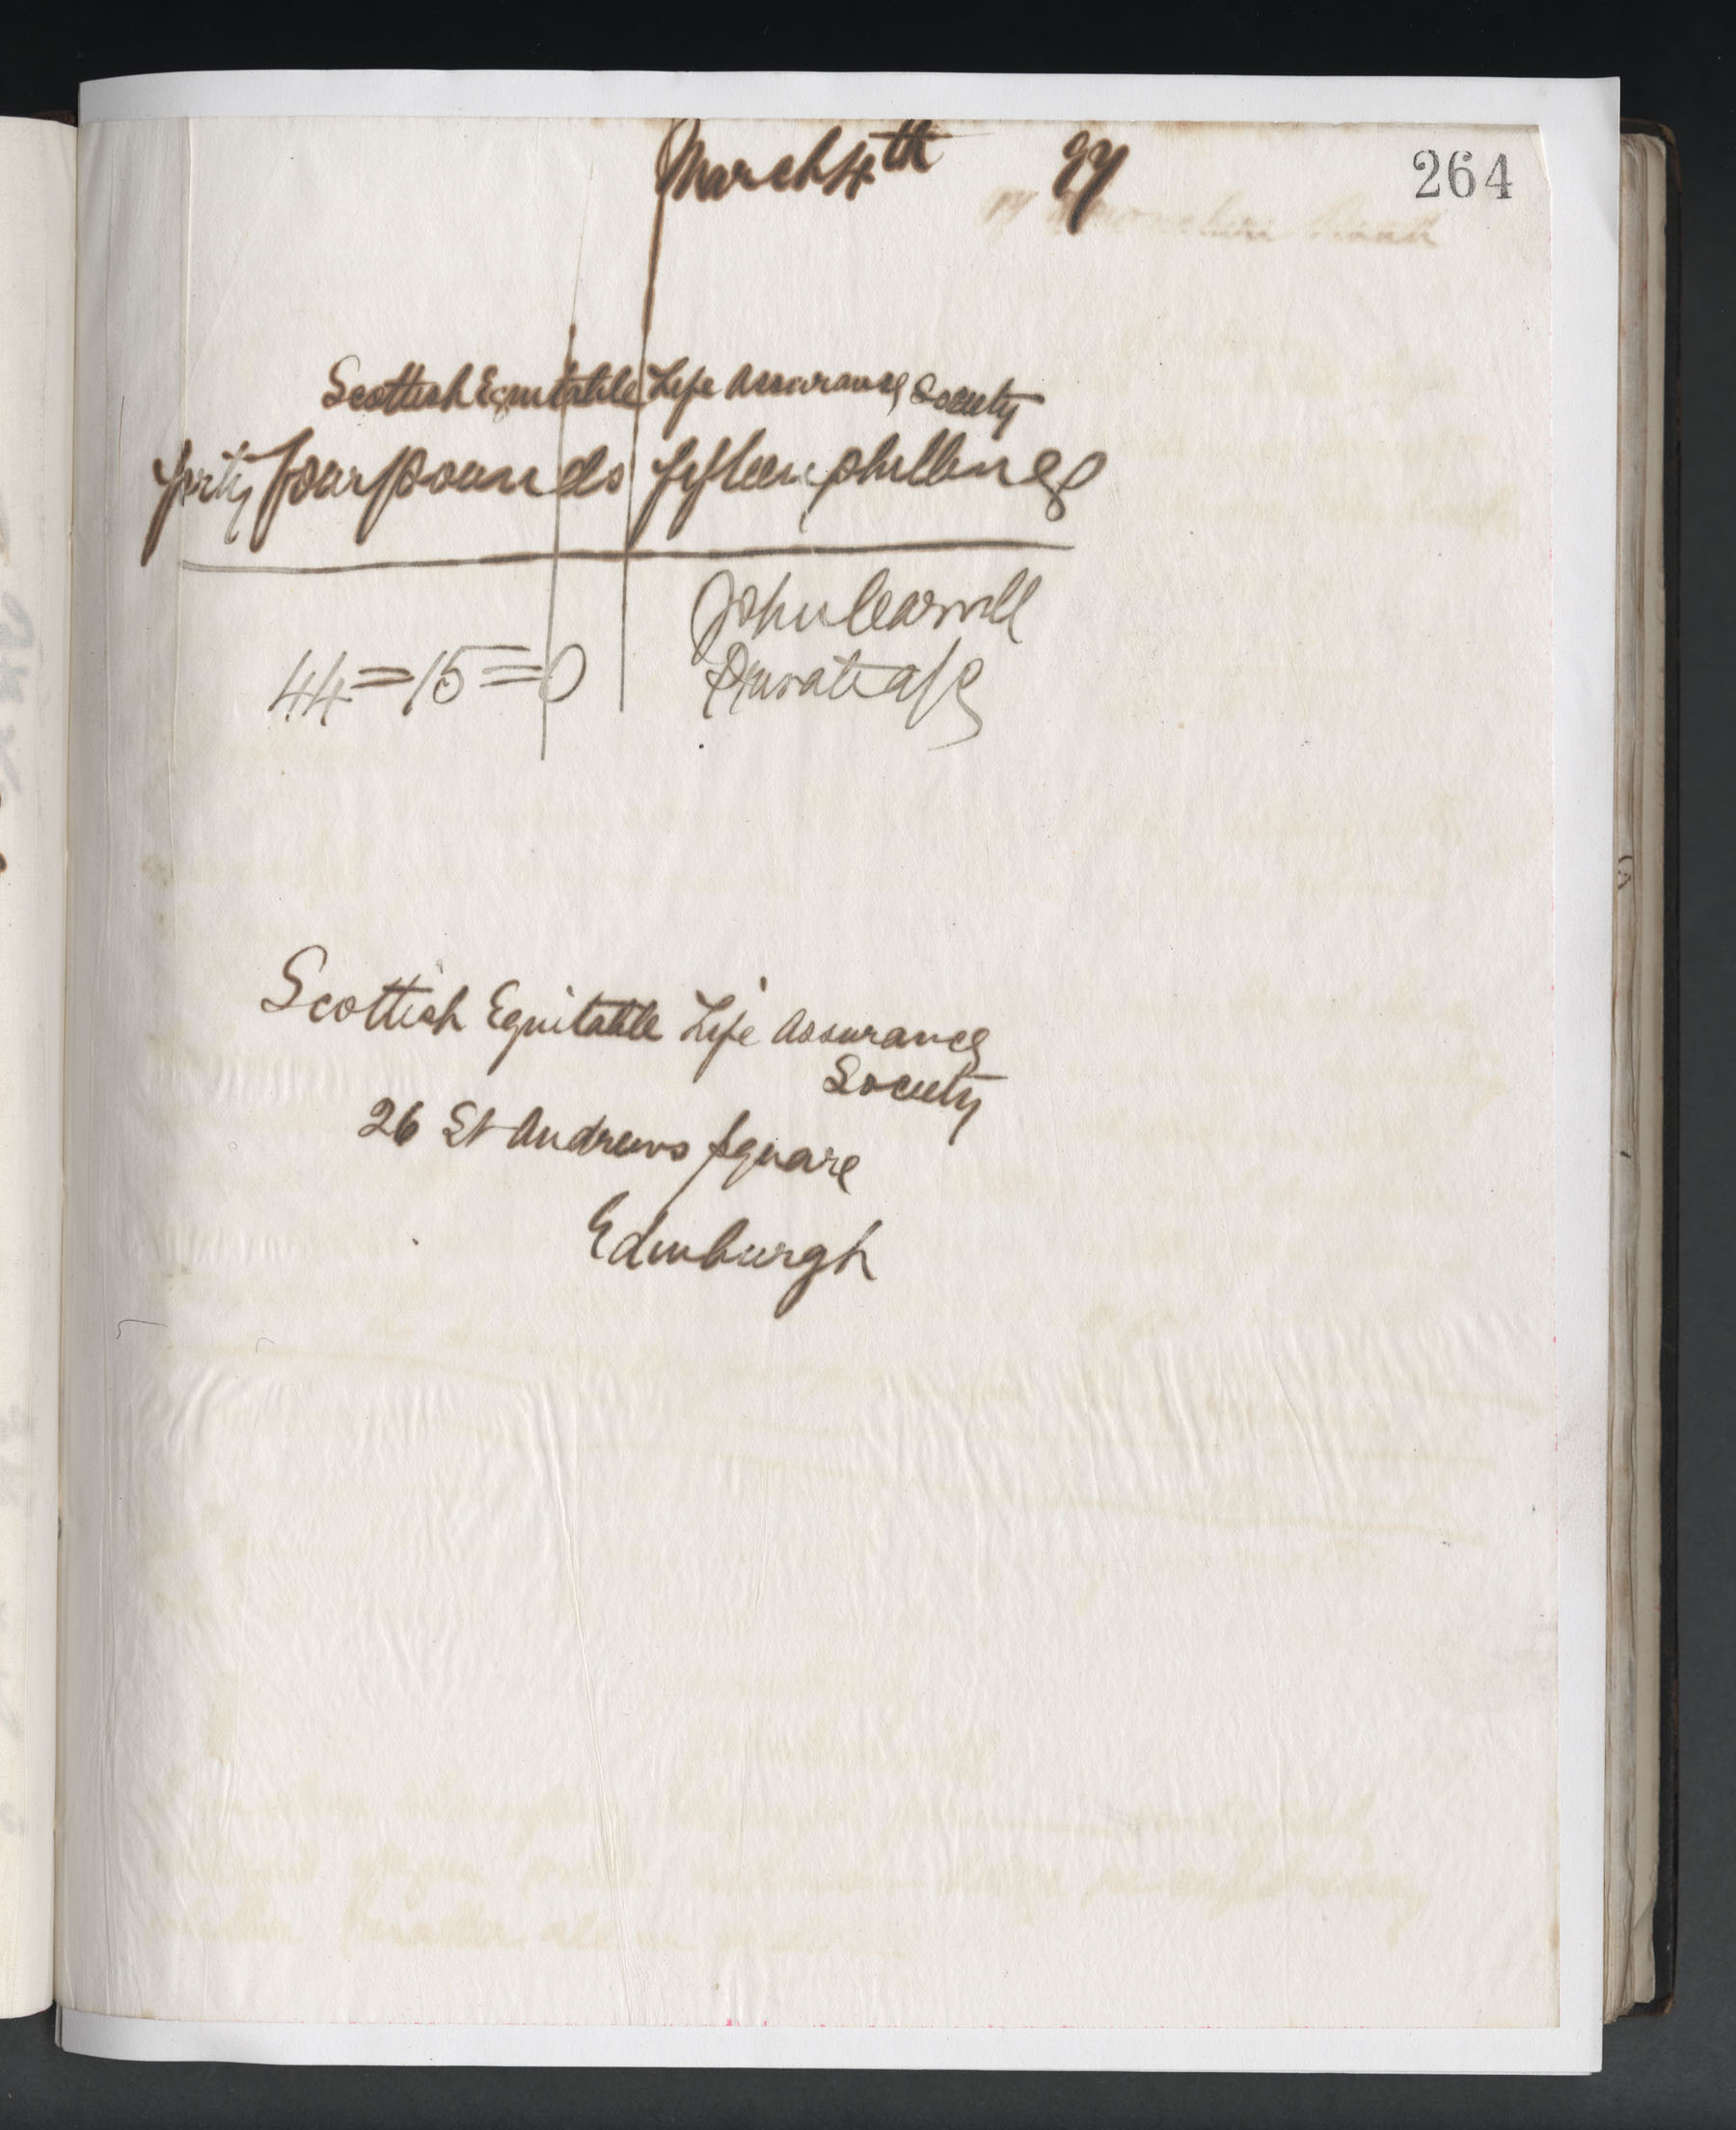 264
March 4th 97
Scottish Equitable Life Assurance Society
forty four pounds fifteen shillings
John Carvill
44=15=0
Private a/c
Scottish Equitable Life Assurance
Society
26 St Andrews Square
Edinburgh